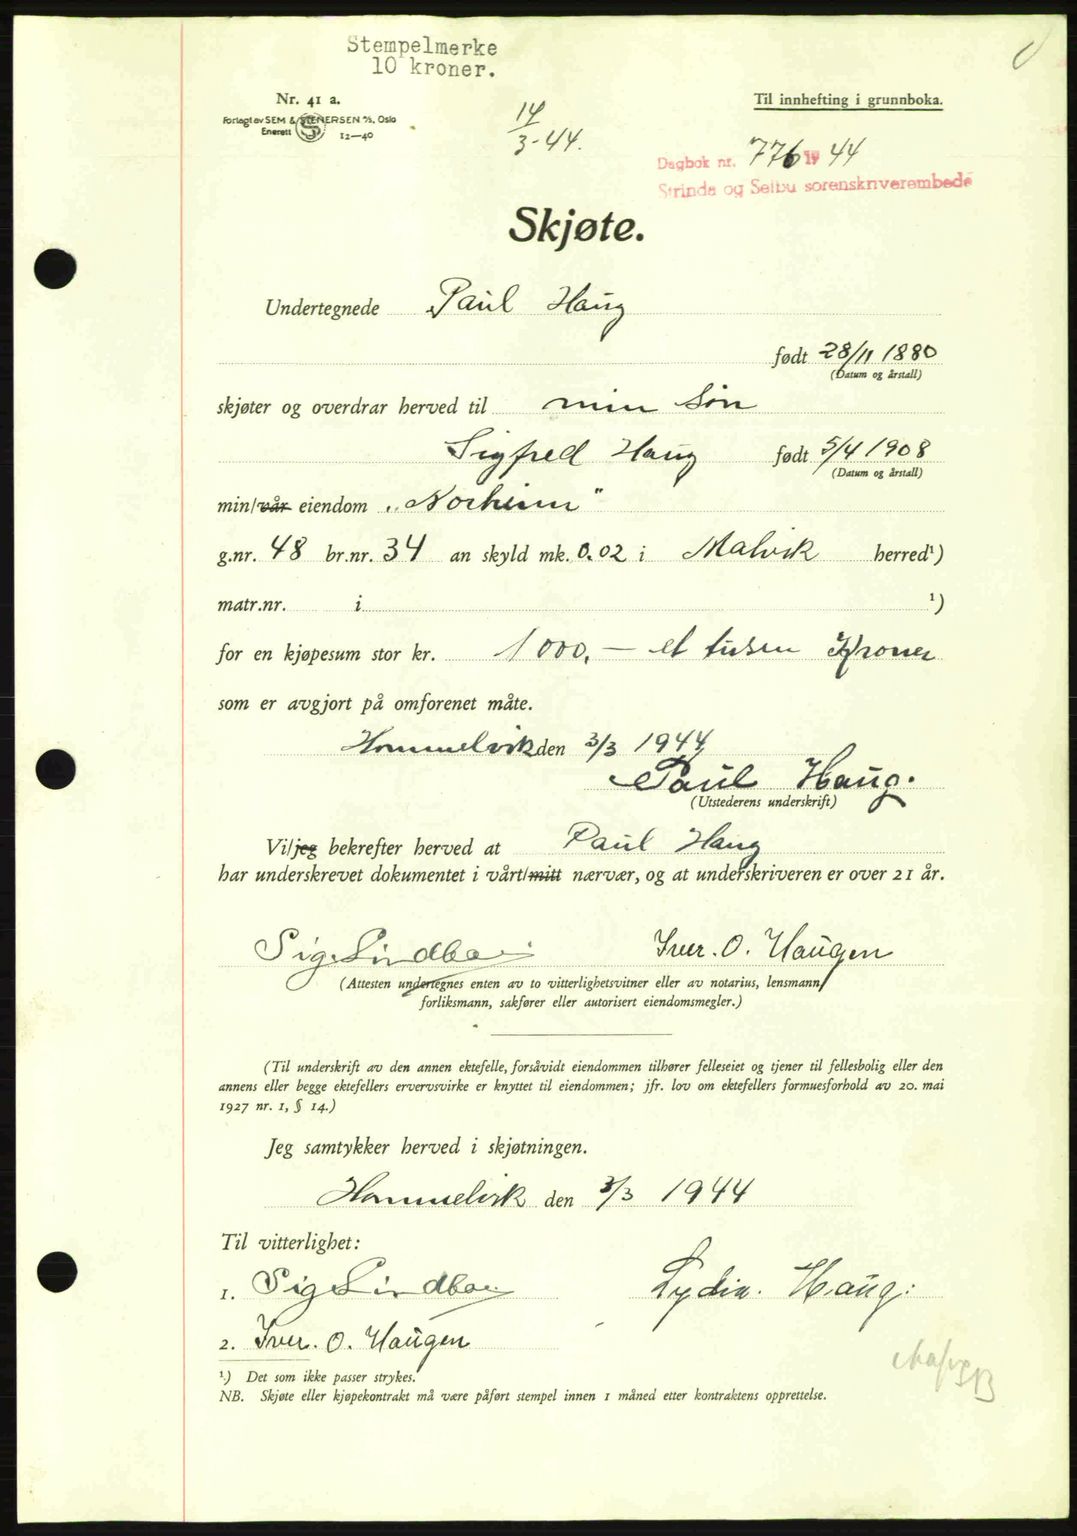 Stempelmerke
10 kroner.
Nr. 41 a.
Forlagt av SEM & STENERSEN A/S, Oslo
Enerett S 12—40
14/3-44.
Til innhefting i grunnboka.
Dagbok nr. 776 19 44
Strinda og Selbu sorenskriverembede
Skjøte.
Undertegnede Paul Haug
født 28/11 1880
(Datum og årstall)
skjøter og overdrar herved til min Søn
Sigfred Haug født 5/4 1908
(Datum og årstall)
min/vår eiendom „Norheim"
g.nr. 48 br.nr. 34 an skyld mk. 0.02 i Malvik herred¹)
matr.nr. i ¹)
for en kjøpesum stor kr. 1000,— et tusen Kroner
som er avgjort på omforenet måte.
Hommelvik den 3/3 1944
Paul Haug.
(Utstederens underskrift)
Vi/jeg bekrefter herved at Paul Haug
har underskrevet dokumentet i vårt/mitt nærvær, og at underskriveren er over 21 år.
Sig. Lindbae Iver. O. Haugen
(Attesten undertegnes enten av to vitterlighetsvitner eller av notarius, lensmann,
forliksmann, sakfører eller autorisert eiendomsmegler.)
(Til underskrift av den annen ektefelle, forsåvidt eiendommen tilhører felleseiet og tjener til fellesbolig eller den
annens eller begge ektefellers ervervsvirke er knyttet til eiendommen; jfr. lov om ektefellers formuesforhold av 20. mai
1927 nr. 1, § 14.)
Jeg samtykker herved i skjøtningen.
Hommelvik den 3/3 1944
Til vitterlighet:
1. Sig Lindbae Lydia. Haug.
2. Iver. O. Haugen
¹) Det som ikke passer strykes.
NB. Skjøte eller kjøpekontrakt må være påført stempel innen 1 måned etter kontraktens opprettelse.